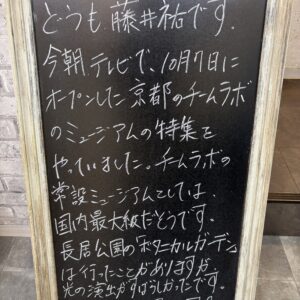 どうも藤井祐です.
今朝テレビで、10月7日に
オープンした京都のチームラボ
のミュージアムの特集を
やっていました。チームラボの
常設ミュージアムとしては、
国内最大級だそうです。
長居公園の"ボタニカルガーデン"
は行ったことがありますが、
光の演出がすばらしかったです.